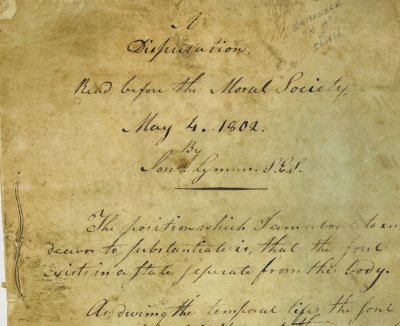 A
Disputation,
Read before the Moral Society,
May 4. 1802.
By
Lyman. S.E.S.
The position which I am about to en
deavor to substantiate is, that the soul
exists in a state seperate from the body.
As during the temporal life, the soul